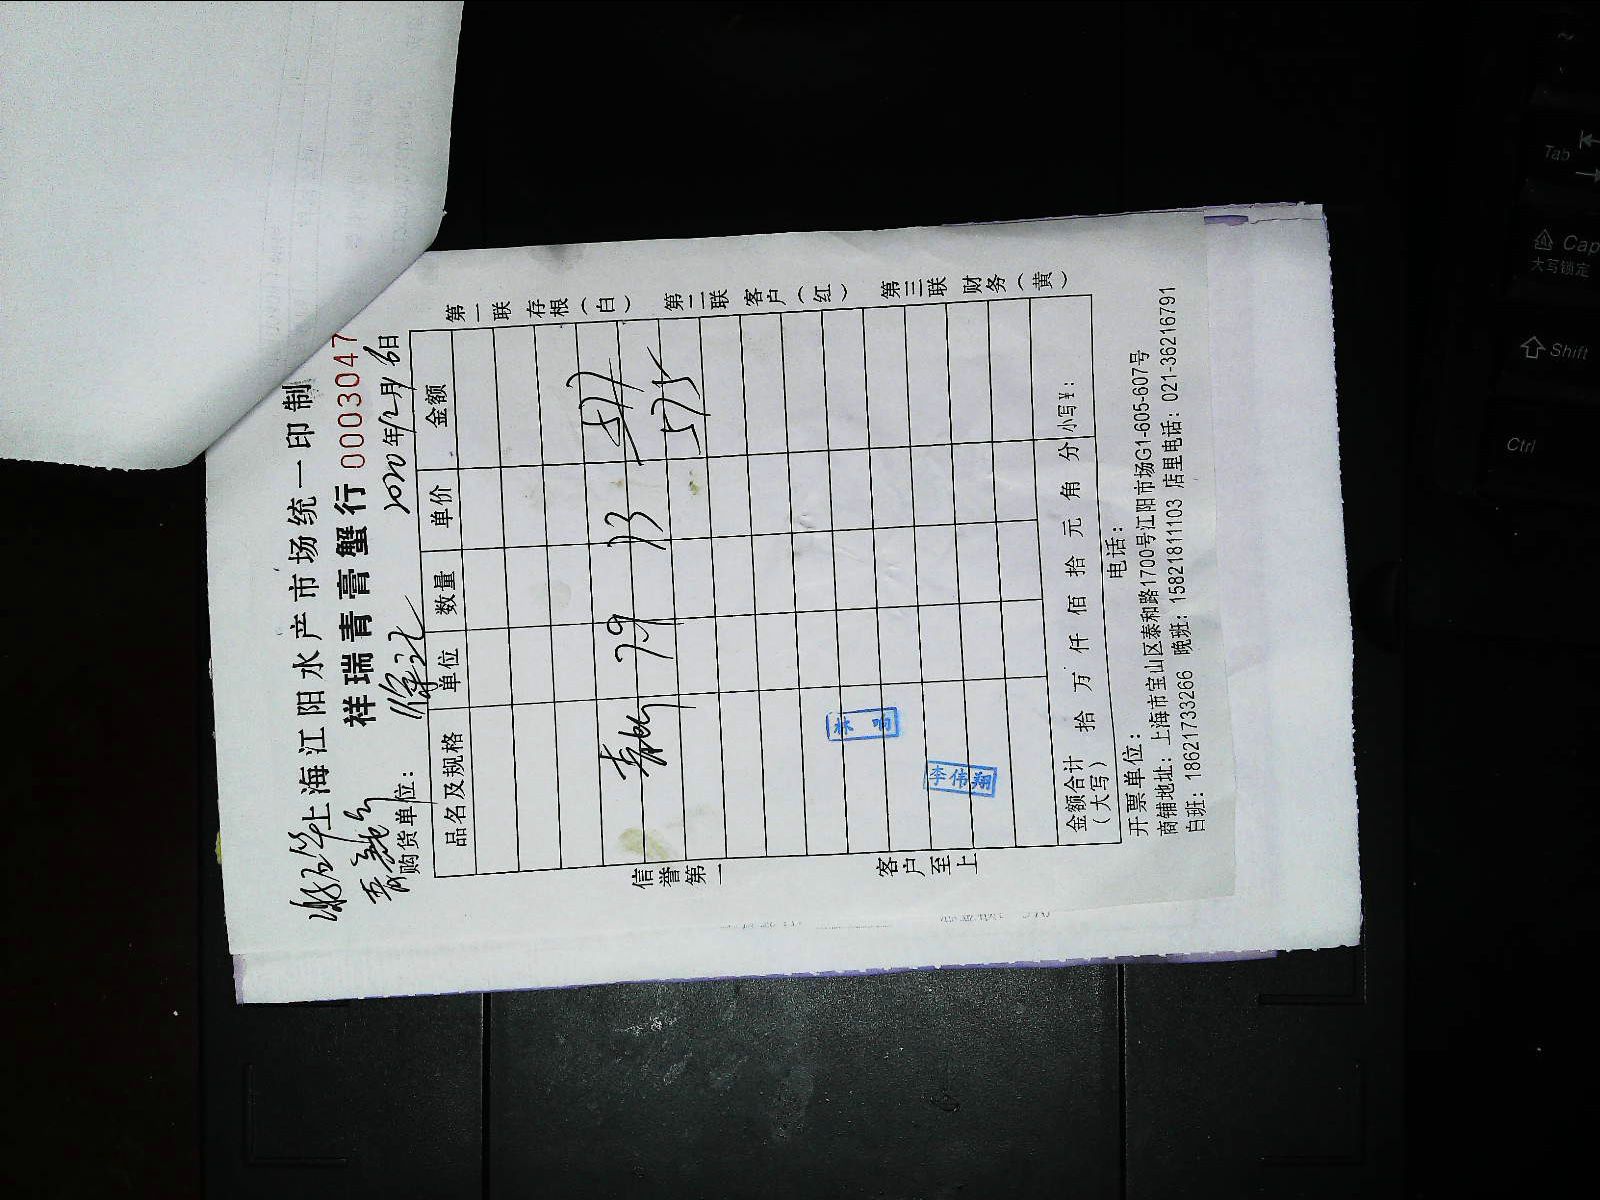 上海江阳水产市场统一印制
祥瑞青膏蟹行 0003047
购货单位： 2020年12月16日
品名及规格 单位 数量 单价 金额
7.9 73 577
575
林响
李伟翔
金额合计（大写） 拾 万 仟 佰 拾 元 角 分 小写¥：
开票单位： 电话：
商铺地址：上海市宝山区泰和路1700号江阳市场G1-605-607号
白班：18621733266 晚班：15821811103 店里电话：021-36216791
信誉第一 客户至上
第一联 存根（白） 第二联 客户（红） 第三联 财务（黄）
Tab
Cap
大写锁定
Shift
Ctrl